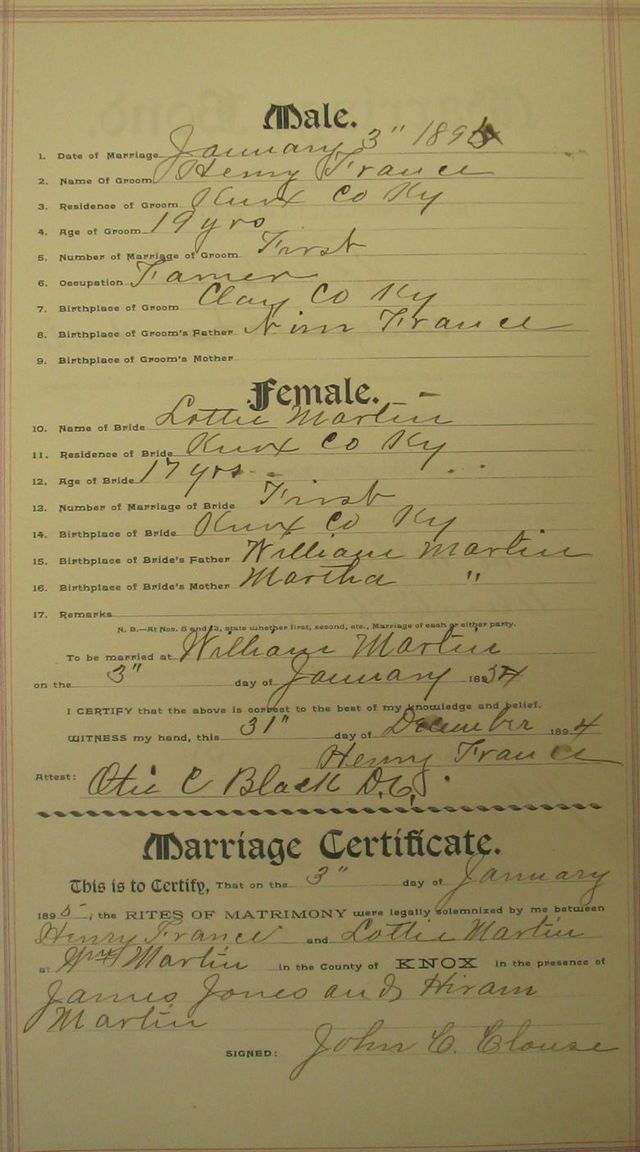 Male.
1. Date of Marriage January 3" 1895
2. Name Of Groom Henry France
3. Residence of Groom Knox Co Ky
4. Age of Groom 19 yrs
5. Number of Marriage of Groom First
6. Occupation Farmer
7. Birthplace of Groom Clay Co Ky
8. Birthplace of Groom's Father Nim France
9. Birthplace of Groom's Mother
Female.
10. Name of Bride Lottie Martin
11. Residence of Bride Knox Co Ky
12. Age of Bride 17 yrs
13. Number of Marriage of Bride First
14. Birthplace of Bride Knox Co Ky
15. Birthplace of Bride's Father William Martin
16. Birthplace of Bride's Mother Martha "
17. Remarks
N. B.—At Nos. 5 and 13, state whether first, second, etc., Marriage of each or either party.
To be married at William Martin
on the 3" day of January 189
I CERTIFY that the above is correct to the best of my knowledge and belief.
WITNESS my hand, this 31" day of December 1894
Henry France
Attest: Otie C Black D.C.
Marriage Certificate.
This is to Certify, That on the 3" day of January
1895, the RITES OF MATRIMONY were legally solemnized by me between
Henry France and Lottie Martin
at Wm Martin in the County of KNOX in the presence of
James Jones and Hiram
Martin
SIGNED: John C. Clouse